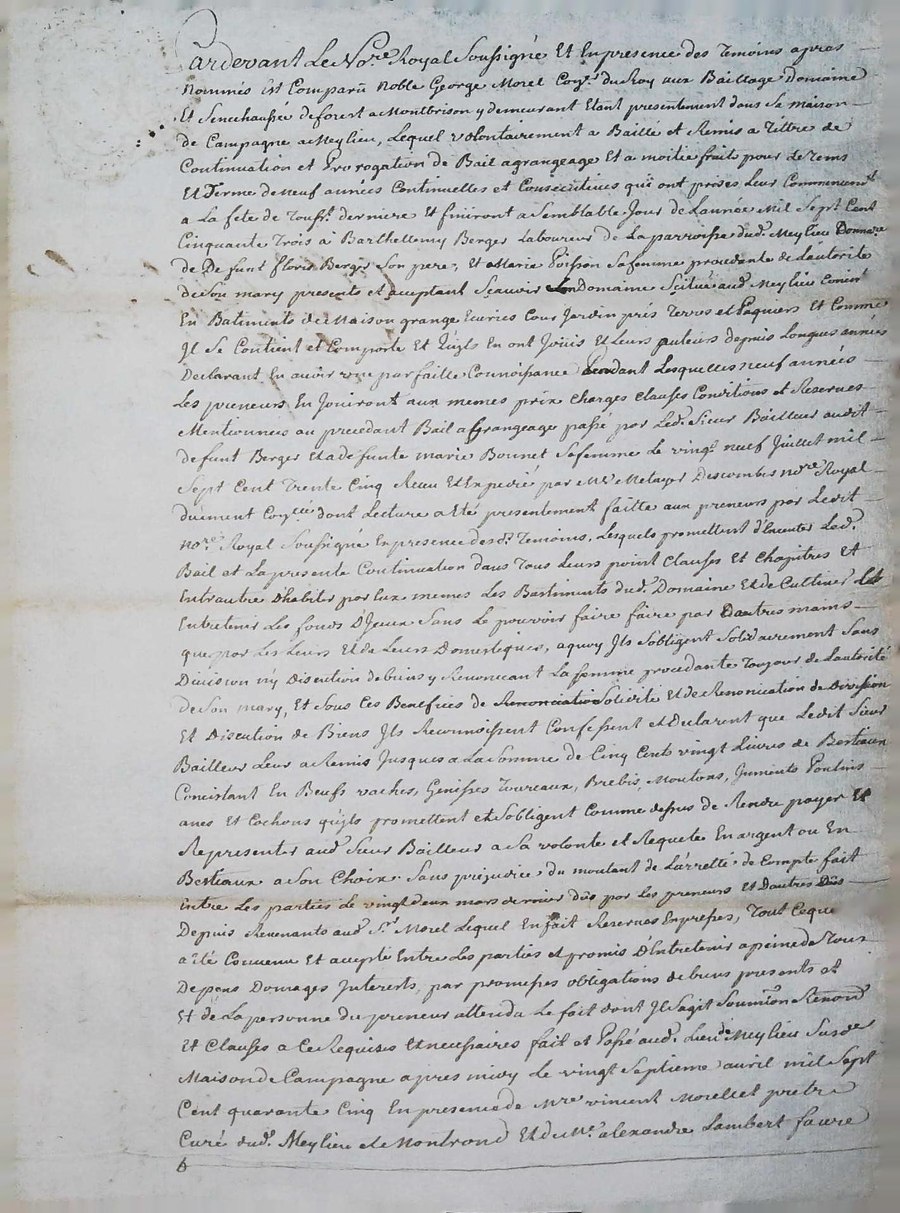 Pardevant Le No.re Royal Soussigné Et En presence des Temoins apres
Nommés Est Comparü Noble George Morel Con.er du Roy aux Bailliage Domaine
Et Senechaussée de forest a Montbrison y demeurant Etant presentement dans Sa maison
de Campagne a Meylieu, Lequel volontairement a Baillé et Remis a Tittre de
Continuation et Prorogation de Bail agrangeage Et a moitié fruit pour de tems
Et Terme de Neuf années Continuelles et Consecutives qui ont prises Leur Commencem.t
a La fete de Touss.t derniere Et finiront a Semblable Jour de Lannée Mil Sept Cent
Cinquante Trois à Barthellemy Berger Laboureur de La parroisse dud. Meylieu
de Defunt floris Berger Son pere, Et a Marie Poisson Sa femme procedante de Lautorité
de Son mary presents et acceptant Scauoir Un Domaine Scitué aud. Meylieu
En Batiments de Maison grange Ecuries Cour Jardin prés Terres et Paquiers Et Comme
Jl Se Contient et Comporte Et Qu'jls En ont Joüis Et Leurs auteurs depuis Longues années
Declarant En auoir une parfaitte Connoissance Pendant Lesquelles neuf années
Les preneurs En Jouiront aux memes prix Charges Clauses Conditions et Reserves
Mentionnees au precedant Bail a grangeage passé par Led. Sieur Bailleur audit
defunt Berger Et a defunte marie Bonnet Sa femme Le vingt neuf Juillet mil
Sept Cent Trente Cinq Receu Et Expedié par M.e Metayer Descombes no.re Royal
duëment Con.llé dont Lecture a Eté presentement faitte aux preneurs par Ledit
No.re Royal Soussigné En presence des d. Temoins, Lesquels promettent d'Executer Led.
Bail et La presente Continuation dans Tous Leurs point Clauses Et Chapitres Et
Entrautre D'habiter par Eux memes Les Bastiments dud. Domaine Et de Cultiver Et
Entretenir Les fonds D'Jceux Sans Le pouvoir faire faire par Dautres mains
que par Les Leurs Et de Leurs Domestiques, a quoy Jls Sobligent Solidairement Sans
Division ny Discution de biens y Renoncant La femme procedante Toujour de Lautorité
de Son mary, Et Sous Ces Benefices de Renonciation Solidité Et de Renonciation de Division
Et Discution de Biens Jls Reconnoissent Confessent et Declarent que Ledit Sieur
Bailleur Leur a Remis Jusques a La Somme de Cinq Cent vingt Livres de Bestiaux
Concistant En Beufs vaches, Genisses Toureaux, Brebis, Moutons, Juments Poulins
anes Et Cochons qu'jls promettent et Sobligent Comme dessus de Rendre payer Et
Representer aud. Sieur Bailleur a Sa volonté et Requete En argent ou En
Bestiaux a Son Choix Sans prejudice du montant de Larretté de Compte fait
Entre Les parties Le vingt deux mars dernier dûs par Les preneurs Et Dautres Dûs
Depuis Revenants aud. S.r Morel Lequel En fait Reserves Expresses, Tout Ceque
a Eté Convenu Et accepté Entre Les parties et promis D'Entretenir a peine de Tous
Depens Domages Jnterests, par promesses obligations de biens presents et
Et de La personne du preneur attendu Le fait dont Jl Sagit Soumi.on Renon.on
Et Clauses a Ce Requises Et necessaires fait et Passé aud. Lieu de Meylieu Susd.e
Maison de Campagne apres midy Le vingt Septieme avril mil Sept
Cent quarante Cinq En presence de M.re vincent Morellet pretre
Curé dud. Meylieu et de Montrond Et du M.e alexandre Lambert faure